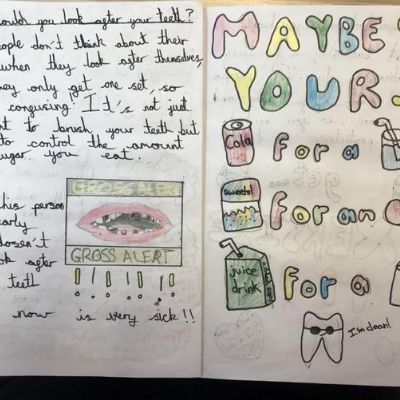 would you look after your teeth?
ople don't think about their
when they look after themselves,
ey only get one set, so
congusing! It's not just
nt to brush your teeth but
to control the amount
ugar you eat.
his person
early
doesn't
ok after
teeth
now is very sick!!
GROSS ALERT
GROSS ALERT
!!!!!!
MAYBE
YOUR
Cola
for a
sweets!
for an
juice
drink
for a
I'm clean!